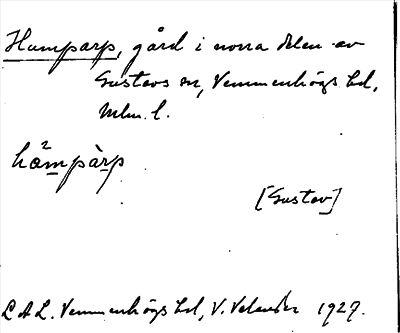 Hamparp, gård i norra delen av
Gustavs sn, Vemmenhögs hd,
Mlm. l.
hä²mpàrp
[Gustav]
L A L. Vemmenhögs hd, V. Velander 1927.